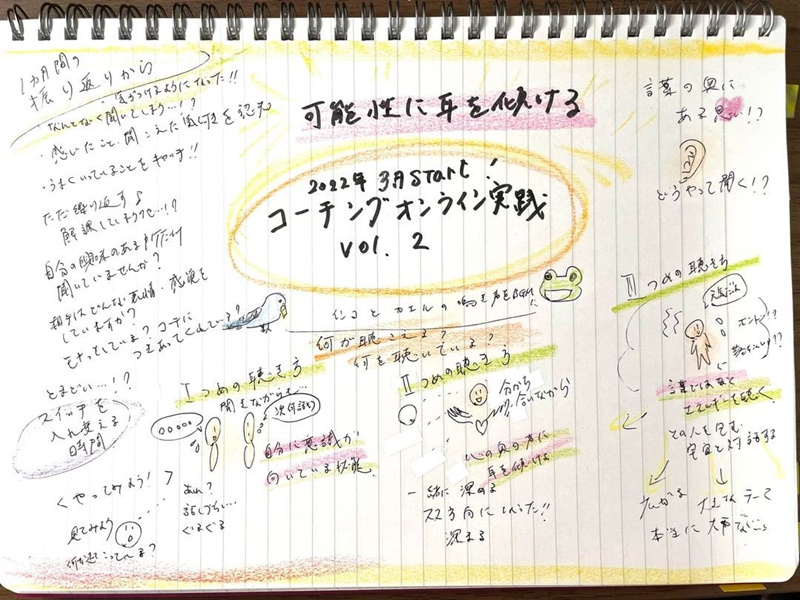 1ヵ月間の
振り返りから
・気がつけるようになった!!
なんとなく聞いてしまう…!?
・感じたこと、聞こえた
・うまくいっていることをキャッチ!!
ただ繰り返す♪
解釈してしまうって…!?
自分の興味のあるものだけ
聞いていませんか?
相手はどんな表情・感覚を
していますか?
コーチに
つきあってくれている?
とまどい…!?
スイッチを
入れ変える
時間
<やってみよう!>
見てみよう
何が起こっている?
可能性に耳を傾ける
2022年 3月 START!
コーチングオンライン実践
vol. 2
インコとカエルの鳴き声をBGMに
何が聴こえる?
何を聴いている?
Iつめの聴き方
聞きながら…
次何話そう
自分に意識が
向いている状態
あれ?
話しづらい…
ぐるぐる
IIつめの聴き方
分かち
合いながら
心の奥の声に
耳を傾ける
一緒に深める
双方向に
深まる
言葉の奥に
ある思い!?
どうやって聞く!?
IIIつめの聴き方
ホント!?
言葉ではなく
エネルギーを聴く
その人を包む
宇宙と対話する
広がる
大きなテーマ
本当に大事なこと